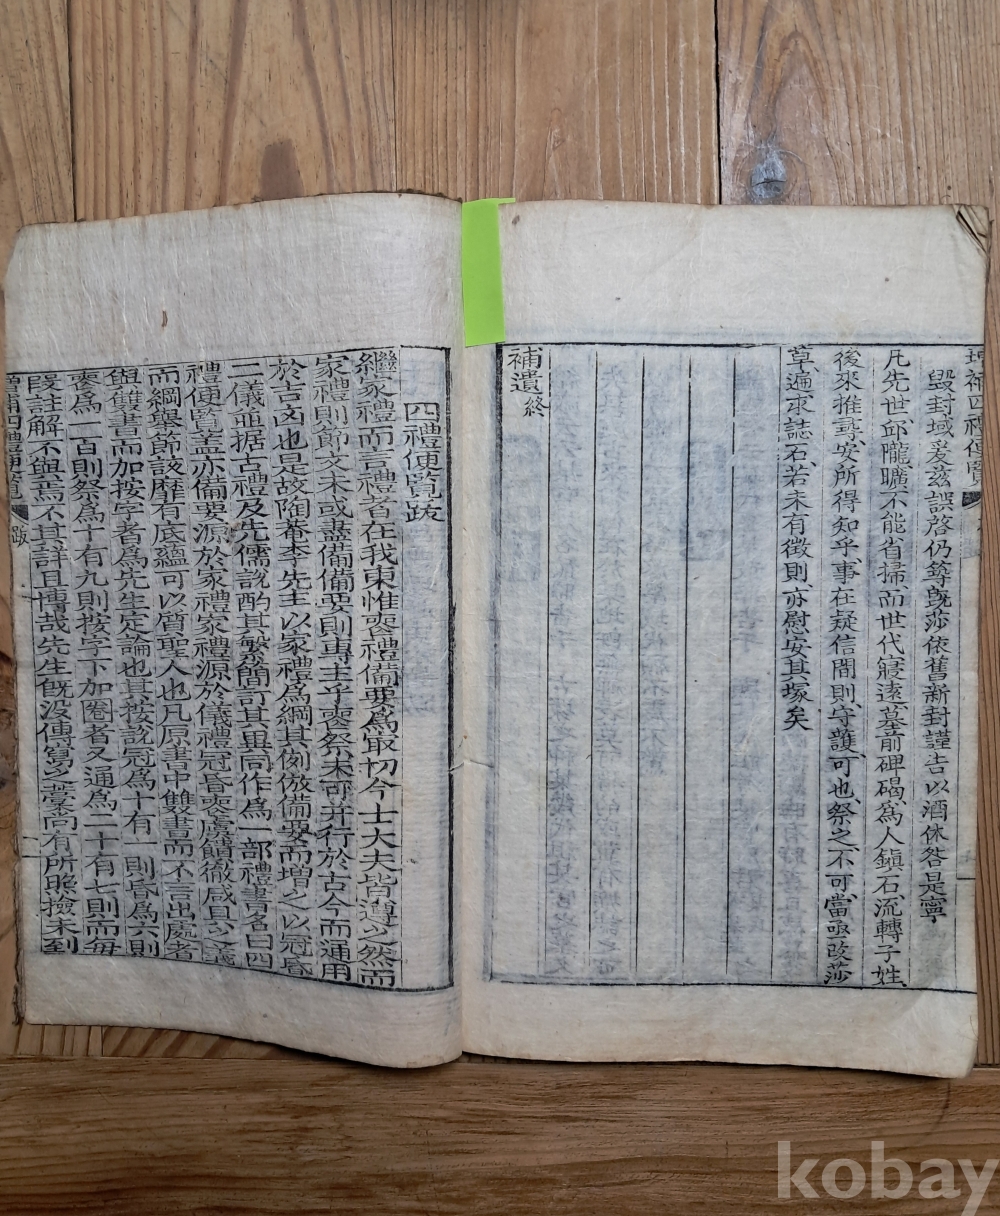 增補四禮便覽
毀封域爰玆誤啓仍築旣莎依舊新封謹告以酒休咎是寧
凡先世邱隴曠不能省掃而世代寢遠墓前碑碣爲人鎭石流轉子姓
後來推尋安所得知乎事在疑信間則守護可也祭之不可當亟改莎
草遍求誌石若未有徵則亦慰安其塚矣
補遺終
四禮便覽跋
繼家禮而言禮者在我東惟喪禮備要爲最切今士大夫皆遵之然而
家禮則節文未或盡備備要則專主乎喪祭未可并行於古今而通用
於吉凶也是故陶菴李先生以家禮爲綱其例倣備要而增之以冠昏
二儀並据古禮及先儒說酌其繁簡訂其異同作爲一部禮書名曰四
禮便覽盖亦備要源於家禮家禮源於儀禮冠昏喪虞饋徹咸具
而綱擧節該靡有底蘊可以質聖人也凡原書中雙書而不言出處者
與雙書而加按字者爲先生定論也其按說冠爲十有一則昏爲六則
喪爲一百則祭爲十有九則按字下加圈者又通爲二十有七則而每
段註解不與焉不其詳且博哉先生旣沒傳寫之藁尙有所照撿未到
增補四禮便覽 跋
kobay